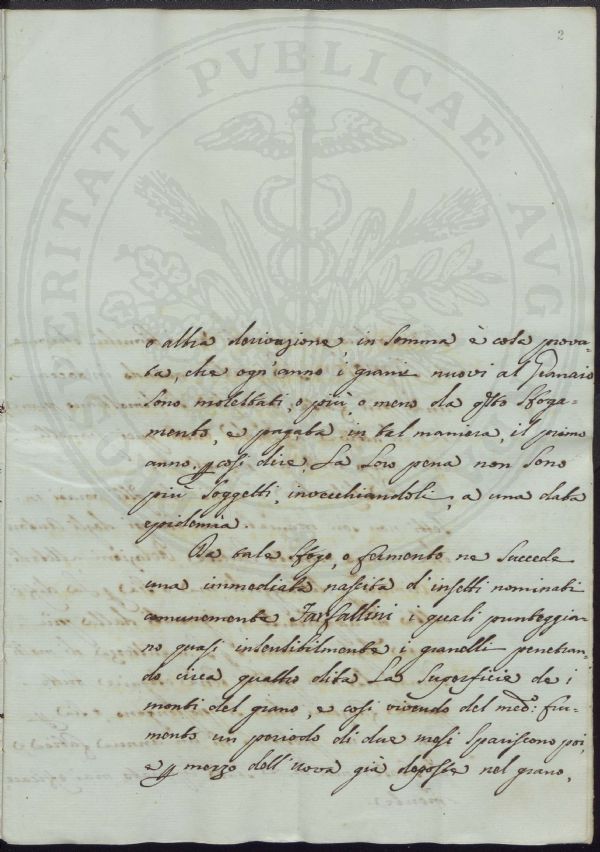 2
o altra derivazione, in somma è cosa prova-
ta, che ogn'anno i grani nuovi al Granaio
sono molestati, o più, o meno da qsto sfoga-
mento, e pagata in tal maniera, il primo
anno, p così dire La Loro pena non sono
più soggetti, invecchiandoli, a una data
epidemia.
Da tale sfogo, o fermento ne succede
una immediata nascita d'insetti nominati
comunemente Farfallini i quali punteggia-
no quasi insensibilmente i granelli penetran-
do circa quattro dita La Superficie de i
monti del grano, e così vivendo del med.: fru-
mento un periodo di due mesi spariscono poi,
e p mezzo dell'uova già deposte nel grano,
PROSPERITATI PVBLICAE AVG